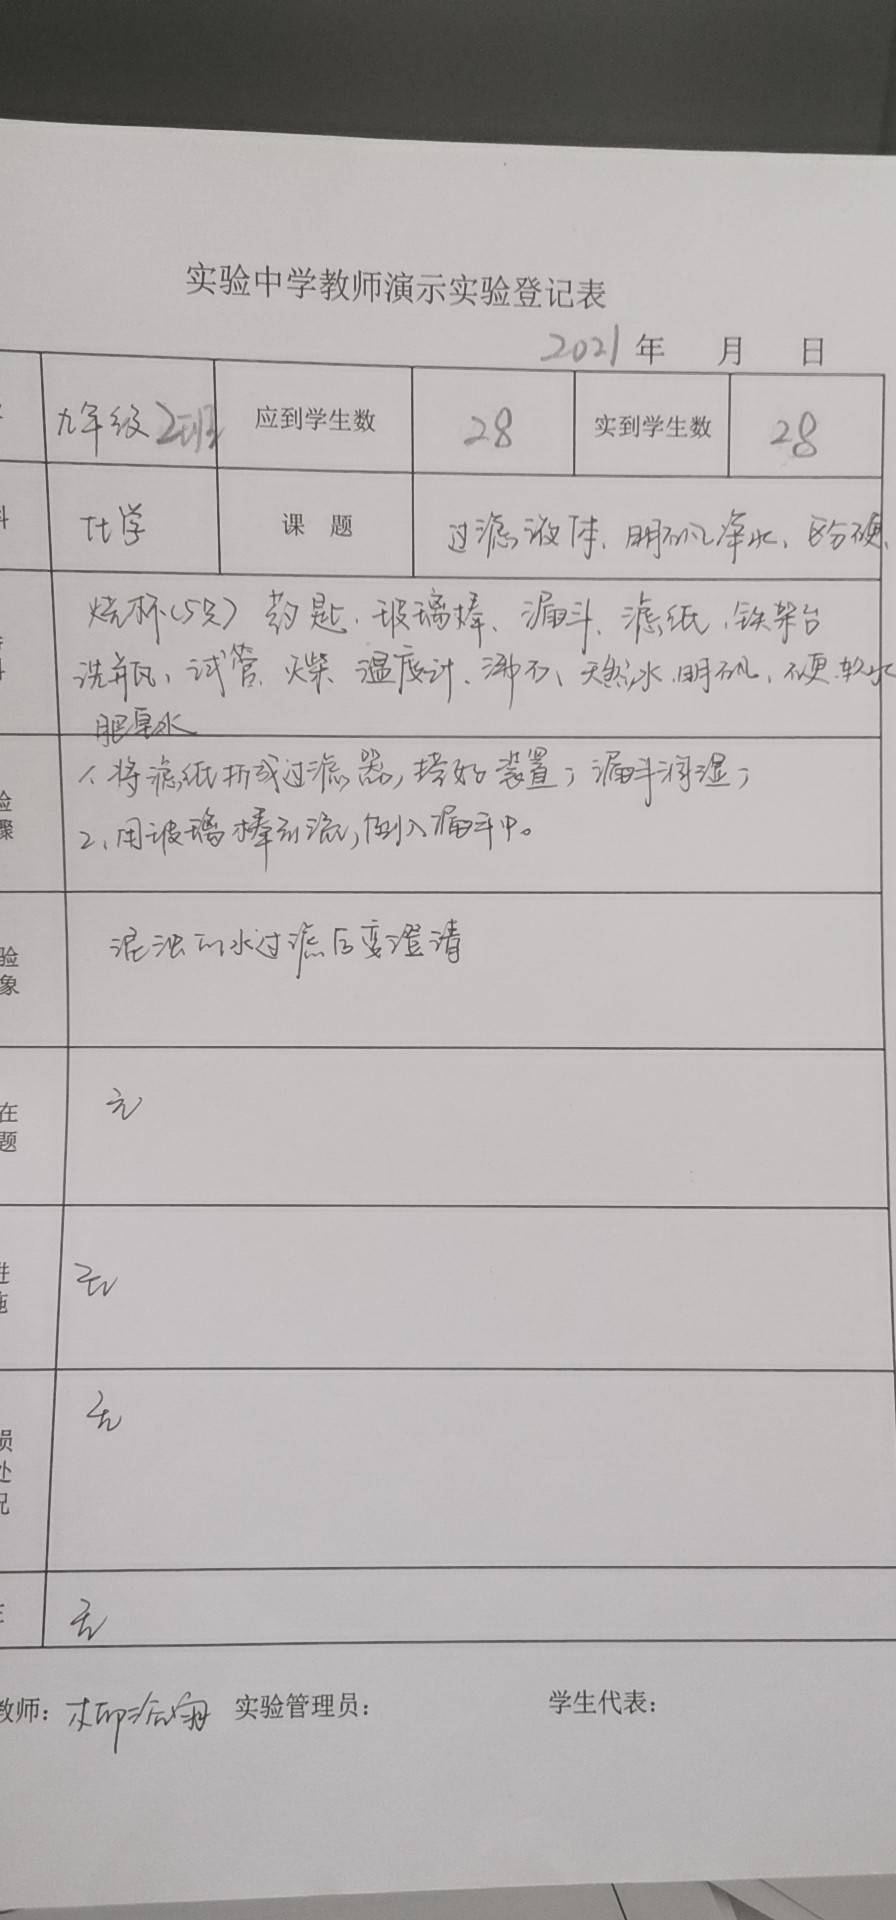 实验中学教师演示实验登记表
2021年 月 日
九年级2班 应到学生数 28 实到学生数 28
科 化学 课 题 过滤液体、明矾净水、区分硬、
烧杯(5只) 药匙、玻璃棒、漏斗、滤纸、铁架台
洗瓶、试管、火柴、温度计、沸石、天然水、明矾、硬、软水
肥皂水
验
骤
1、将滤纸折成过滤器,搭好装置;漏斗润湿;
2、用玻璃棒引流,倒入漏斗中。
验
象
混浊的水过滤后变澄清
在
题
无
进
施
无
损
处
况
无
无
教师: 实验管理员: 学生代表: